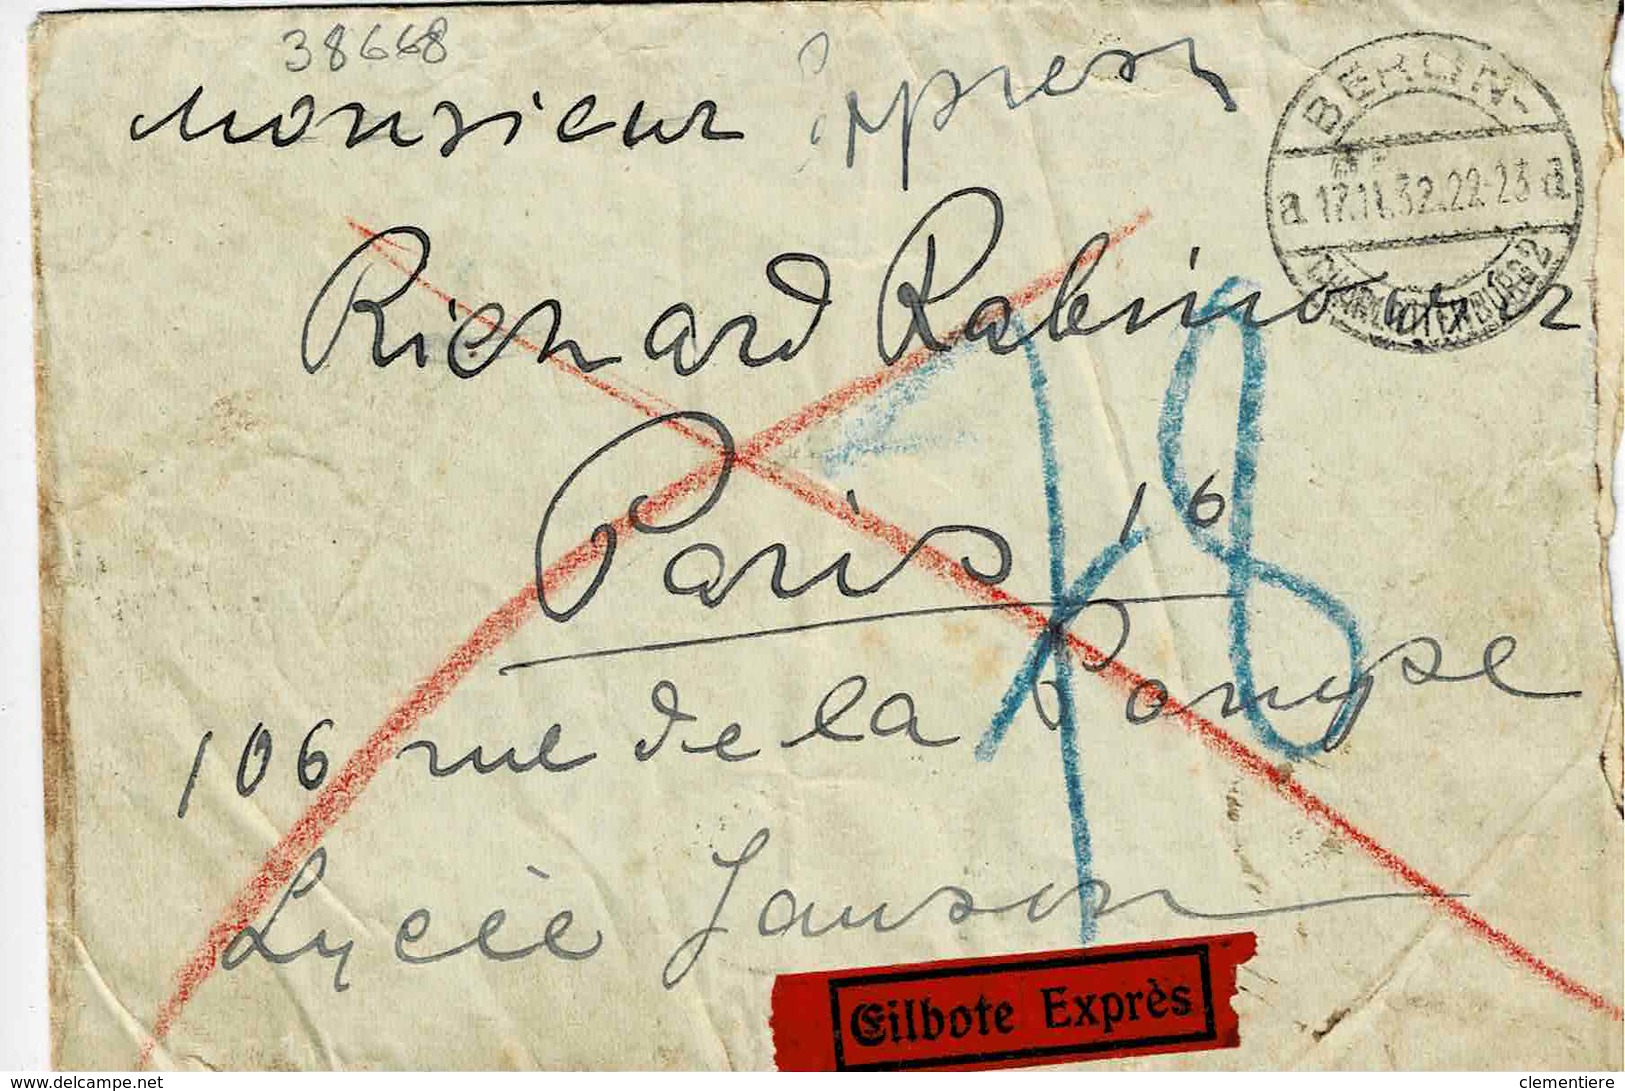 38668
Monsieur Express
Richard Rabinowicz
Paris 16
106 rue de la Pompe
Lycée Janson
18
BERLIN-
a 17.11.32.22-23 d
CHARLOTTENBURG 2
Eilbote Exprès
www.delcampe.net
clementiere